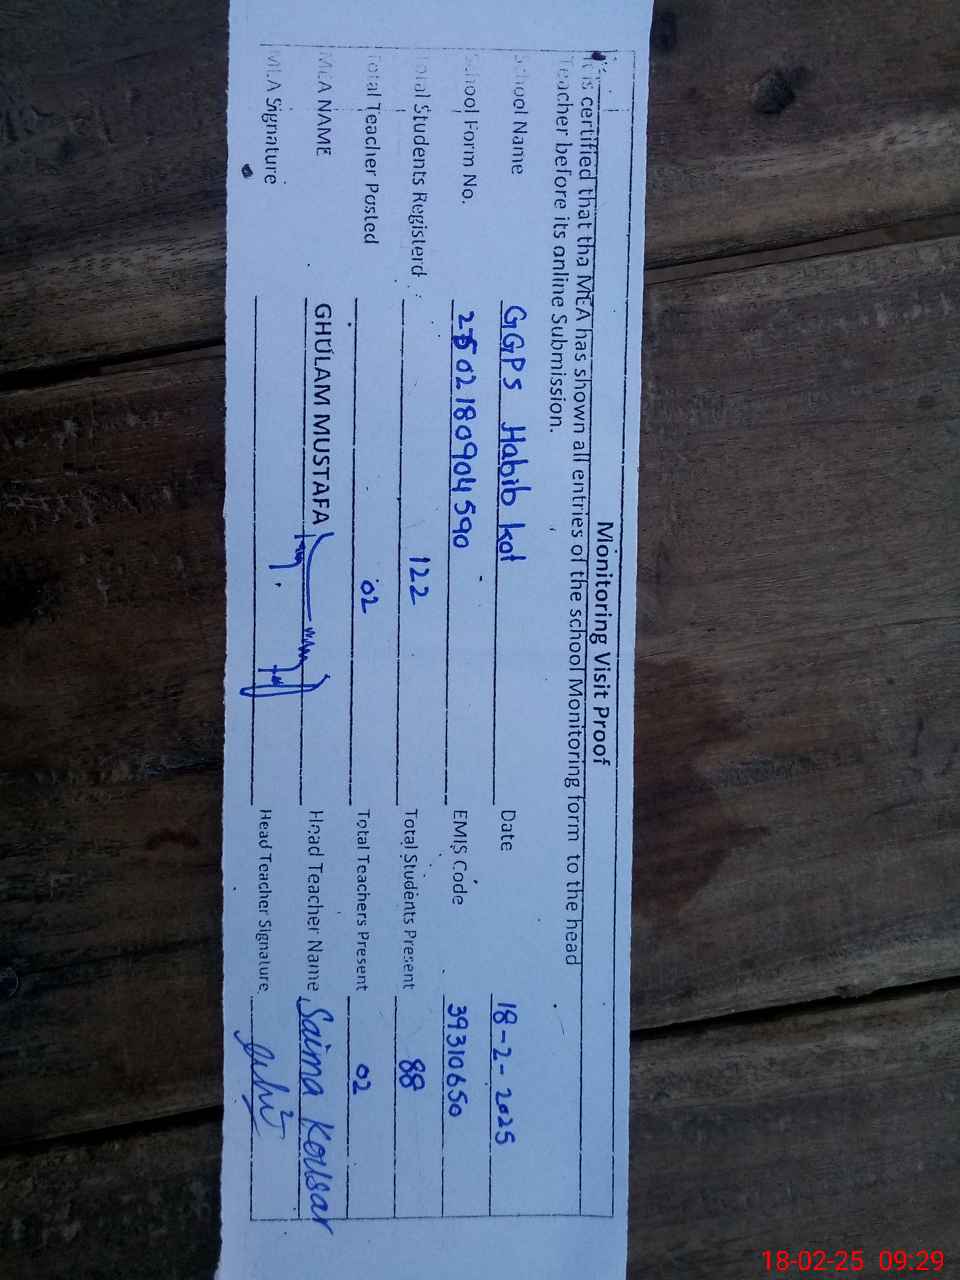 Monitoring Visit Proof
It is certified that tha MEA has shown all entries of the school Monitoring form to the head
Teacher before its online Submission.
School Name GGPS Habib kot Date 18-2-2025
School Form No. 02180904590 EMIS Code 39310650
Total Students Registerd 122 Total Students Present 88
Total Teacher Posted 02 Total Teachers Present 02
MEA NAME GHULAM MUSTAFA Head Teacher Name Saima Kousar
MEA Signature Head Teacher Signature
18-02-25 09:29